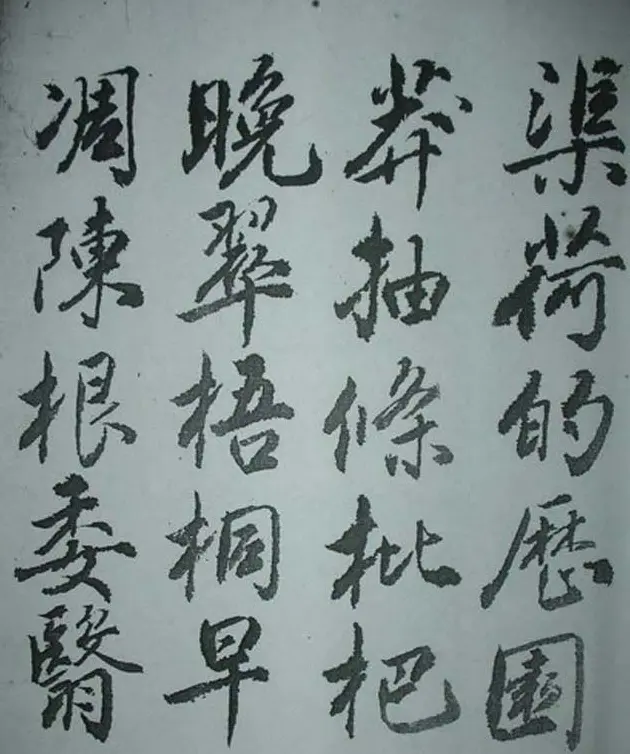 渠荷的歷園
莽抽條枇杷
晚翠梧桐早
凋陳根委翳